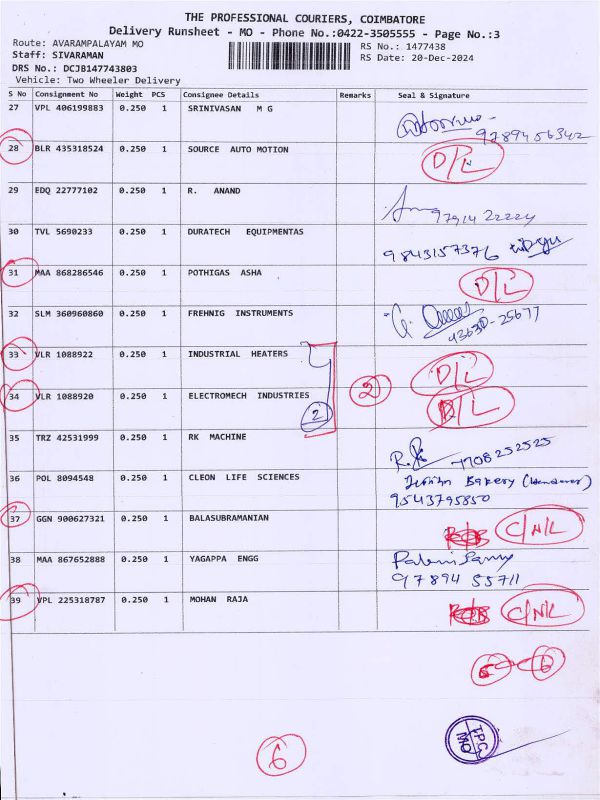 THE PROFESSIONAL COURIERS, COIMBATORE
Delivery Runsheet - MO - Phone No.:0422-3505555 - Page No.:3
Route: AVARAMPALAYAM MO
RS No.: 1477438
Staff: SIVARAMAN
RS Date: 20-Dec-2024
DRS No.: DCJB147743803
Vehicle: Two Wheeler Delivery
S No Consignment No Weight PCS Consignee Details Remarks Seal & Signature
27 VPL 406199883 0.250 1 SRINIVASAN M G
9789456342
28 BLR 435318524 0.250 1 SOURCE AUTO MOTION D/L
29 EDQ 22777102 0.250 1 R. ANAND
30 TVL 5690233 0.250 1 DURATECH EQUIPMENTAS
9843157376
31 MAA 868286546 0.250 1 POTHIGAS ASHA D/L
32 SLM 360960860 0.250 1 FREHNIG INSTRUMENTS
43630-25677
33 VLR 1088922 0.250 1 INDUSTRIAL HEATERS D/L
34 VLR 1088920 0.250 1 ELECTROMECH INDUSTRIES 2 2 D/L
35 TRZ 42531999 0.250 1 RK MACHINE
7708252525
36 POL 8094548 0.250 1 CLEON LIFE SCIENCES
Bakery
9543795850
37 GGN 900627321 0.250 1 BALASUBRAMANIAN C/N/L
38 MAA 867652888 0.250 1 YAGAPPA ENGG
97894 55711
39 VPL 225318787 0.250 1 MOHAN RAJA C/N/L
6
6
TPC
MO